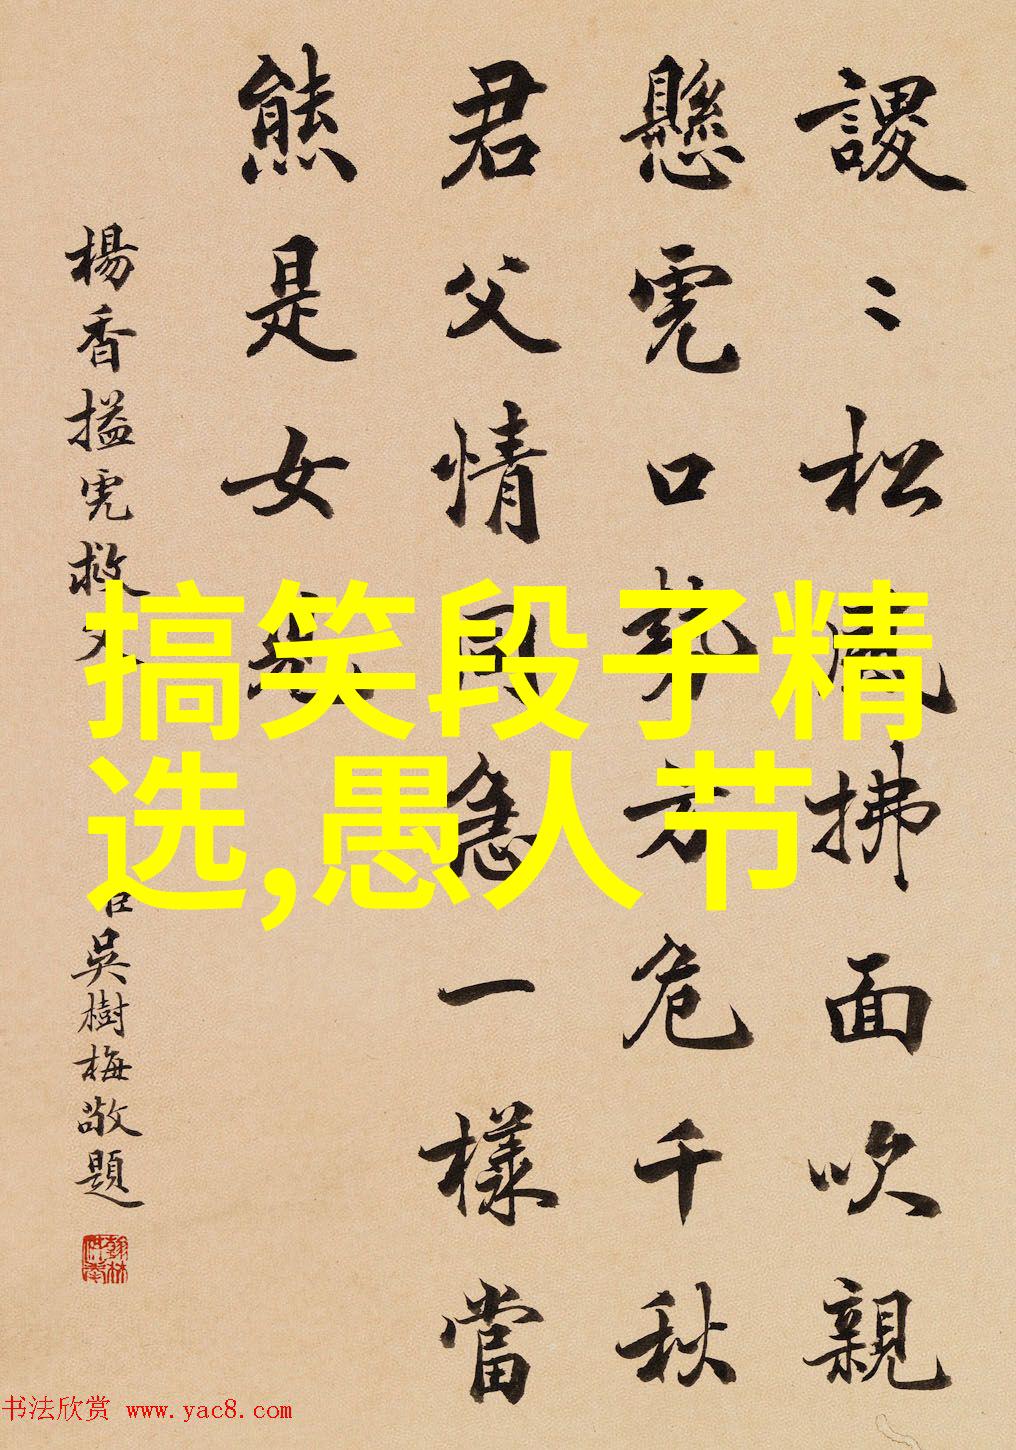 謖〻松風拂面吹親
懸虎口勢方危千秋
君父情同急一樣當
熊是女
楊香搤虎救父
吳樹梅敬題
搞笑段子精
选,愚人节
书法欣赏 www.yac8.com